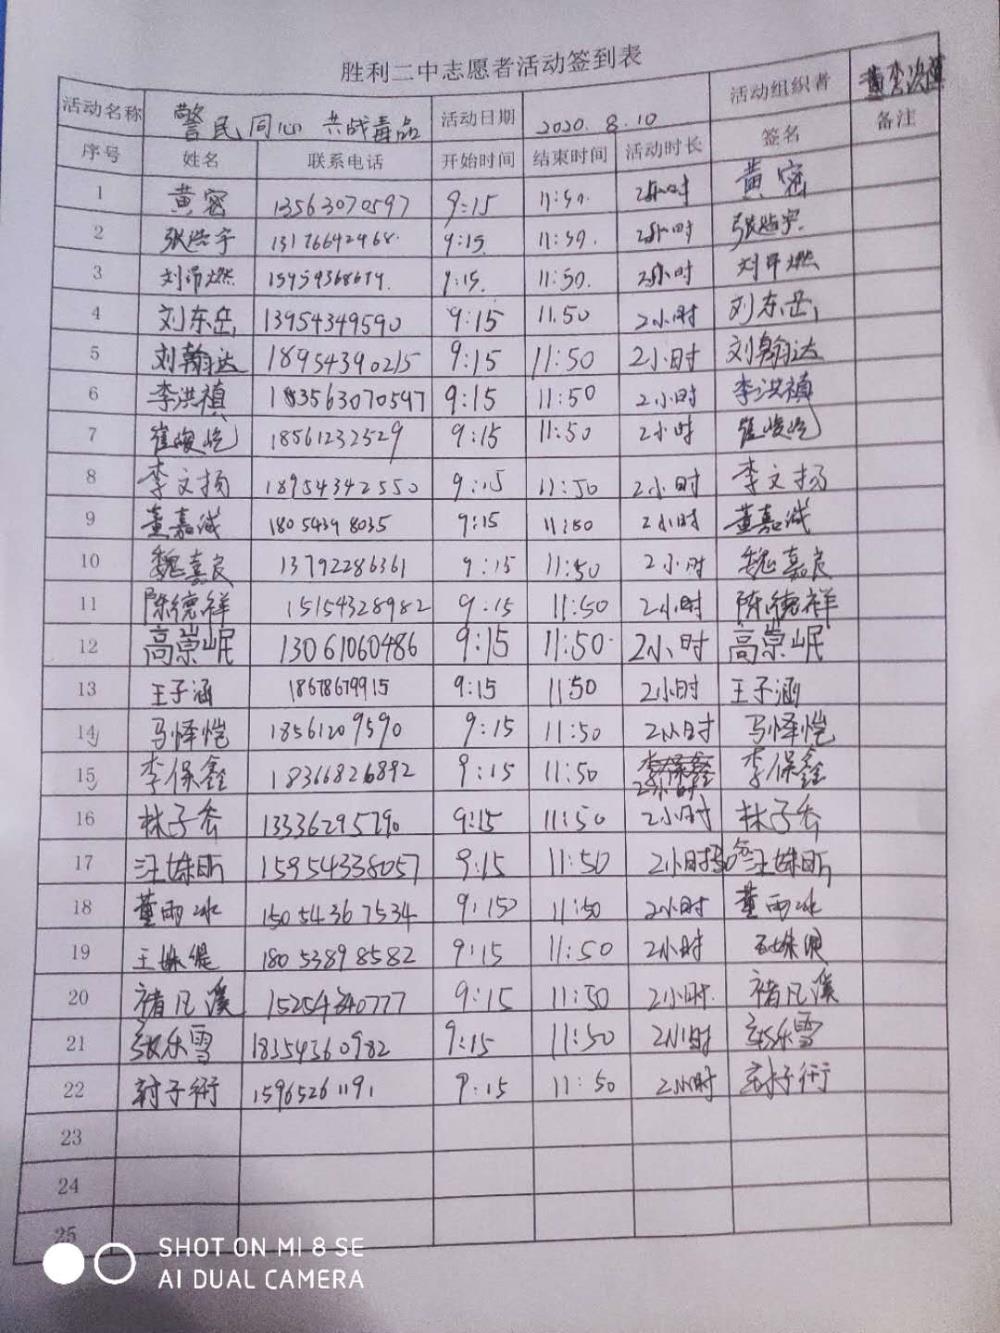 胜利二中志愿者活动签到表
活动名称 警民同心 共战毒品 活动日期 2020.8.10 活动组织者
序号 姓名 联系电话 开始时间 结束时间 活动时长 签名 备注
1 黄密 13563070597 9:15 11:50. 2小时 黄密
2 张皓宇 13176642968. 9:15. 11:50. 2小时 张皓宇
3 1:15. 11:50. 2小时
4 刘东岳 13954349590 9:15 11.50 2小时 刘东岳
5 刘翰达 18954390215 9:15 11:50 2小时 刘翰达
6 李洪禛 183563070597 9:15 11:50 2小时 李洪禛
7 崔峻屹 18561232529 9:15 11:50 2小时 崔峻屹
8 李文扬 18954342550 9:15 11:50 2小时 李文扬
9 董嘉诚 18054398035 9:15 11:50 2小时 董嘉诚
10 魏嘉良 13792286361 9:15 11:50 2小时 魏嘉良
11 陈德祥 15154328982 9:15 11:50 2小时 陈德祥
12 高崇岷 13061060486 9:15 11:50. 2小时 高崇岷
13 王子涵 18678679915 9:15 1150 2小时 王子涵
14 马怿恺 18561209590 9:15 11:50 2小时 马怿恺
15 李保鑫 18366826892 9:15 11:50 李保鑫 2小时 李保鑫
16 林子乔 13336295790 9:15 11:50 2小时 林子乔
17 汪姝昕 15954338057 9:15 11:50 2小时 汪姝昕
18 董雨冰 15054367534 9:15 11:50 2小时 董雨冰
19 王姝缇 18053898582 9:15 11:50 2小时
20 褚凡溪 15254340777 9:15 11:50 2小时. 褚凡溪
21 张乐雪 18354360982 9:15 11:50 2小时 张乐雪
22 15965261191 9:15 11:50 2小时
23
24
25
SHOT ON MI 8 SE
AI DUAL CAMERA